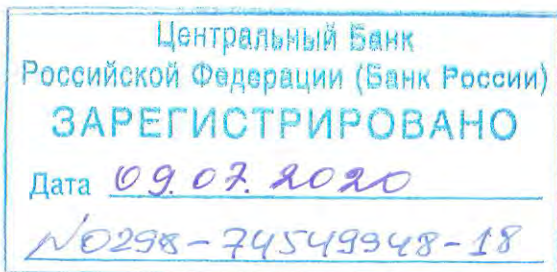 Центральный Банк
Российской Федерации (Банк России)
ЗАРЕГИСТРИРОВАНО
Дата 09.07.2020
№0298-74549948-18